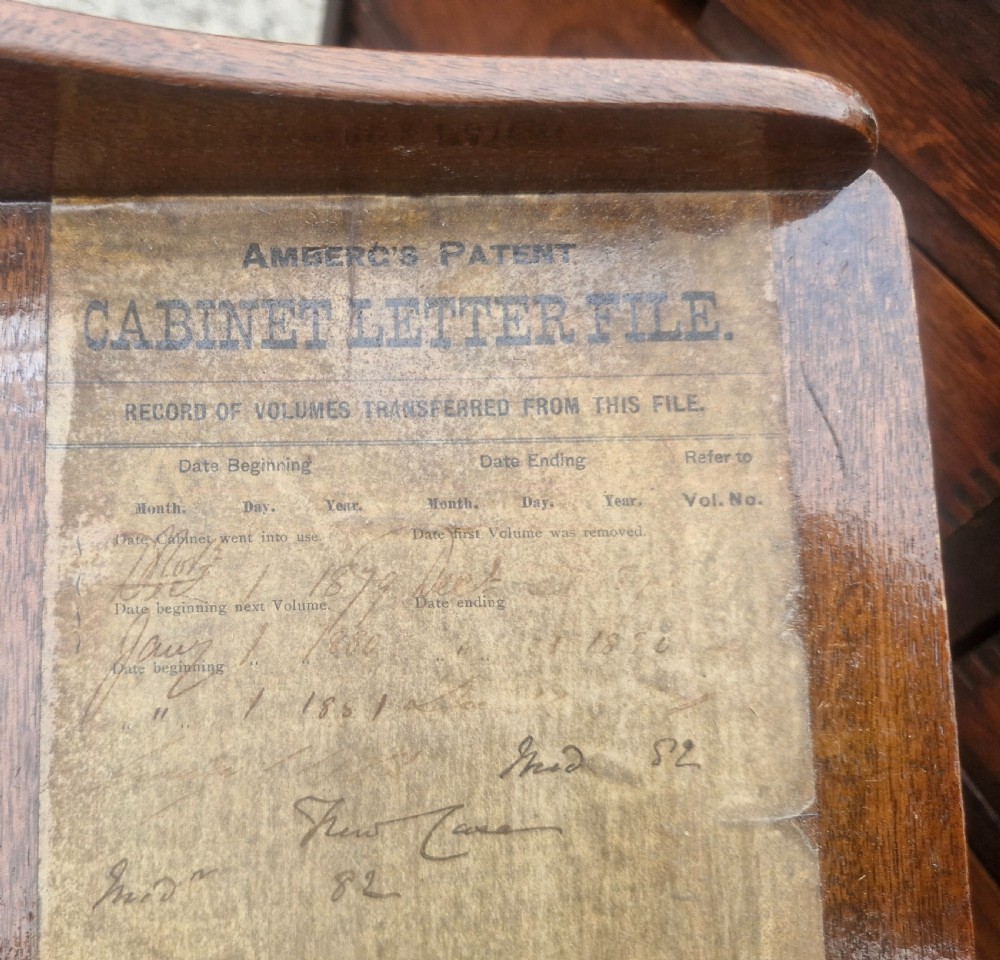 AMBERG'S PATENT
CABINET LETTER FILE.
RECORD OF VOLUMES TRANSFERRED FROM THIS FILE.
Date Beginning Date Ending Refer to
Month. Day. Year. Month. Day. Year. Vol. No.
Date Cabinet went into use. Date first Volume was removed.
1 1879
Date beginning next Volume. Date ending
Jany 1 1880 " " 1880
Date beginning " "
" " " 1 1881
Mid 82
New Case
82